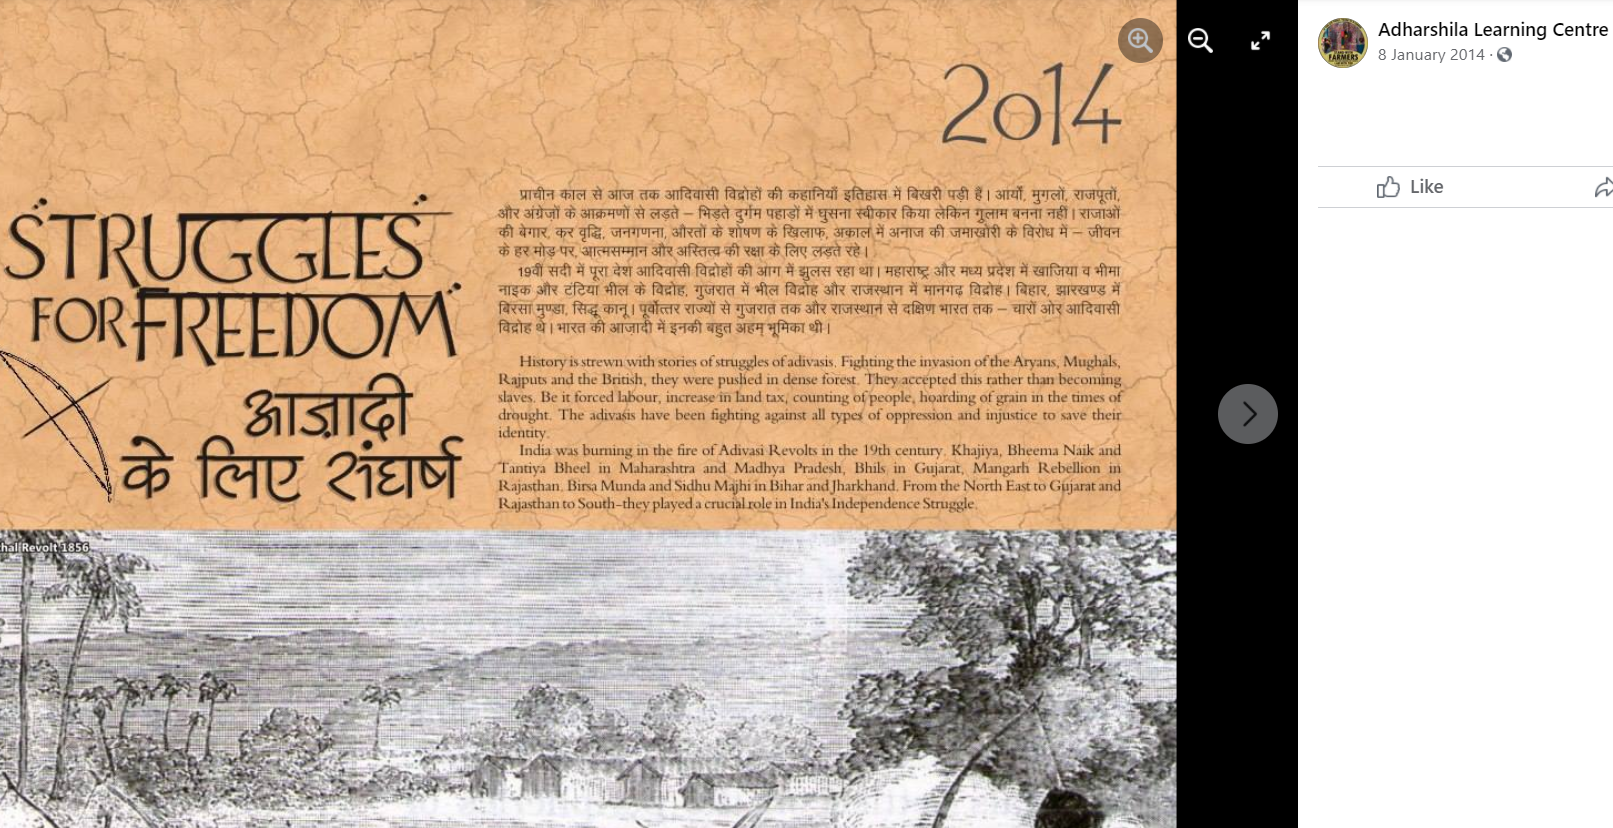 2014
STRUGGLES
FOR FREEDOM
आज़ादी
के लिए संघर्ष
प्राचीन काल से आज तक आदिवासी विद्रोहों की कहानियाँ इतिहास में बिखरी पड़ी हैं। आर्यों, मुगलों, राजपूतों,
और अंग्रेज़ों के आक्रमणों से लड़ते – भिड़ते दुर्गम पहाड़ों में घुसना स्वीकार किया लेकिन गुलाम बनना नहीं। राजाओं
की बेगार, कर वृद्धि, जनगणना, औरतों के शोषण के खिलाफ, अकाल में अनाज की जमाखोरी के विरोध में – जीवन
के हर मोड़ पर, आत्मसम्मान और अस्तित्व की रक्षा के लिए लड़ते रहे।
19वीं सदी में पूरा देश आदिवासी विद्रोहों की आग में झुलस रहा था। महाराष्ट्र और मध्य प्रदेश में खाजिया व भीमा
नाइक और टंटिया भील के विद्रोह, गुजरात में भील विद्रोह और राजस्थान में मानगढ़ विद्रोह। बिहार, झारखण्ड में
बिरसा मुण्डा, सिद्धू कानू। पूर्वोत्तर राज्यों से गुजरात तक और राजस्थान से दक्षिण भारत तक – चारों ओर आदिवासी
विद्रोह थे। भारत की आज़ादी में इनकी बहुत अहम् भूमिका थी।
History is strewn with stories of struggles of adivasis. Fighting the invasion of the Aryans, Mughals,
Rajputs and the British, they were pushed in dense forest. They accepted this rather than becoming
slaves. Be it forced labour, increase in land tax, counting of people, hoarding of grain in the times of
drought. The adivasis have been fighting against all types of oppression and injustice to save their
identity.
India was burning in the fire of Adivasi Revolts in the 19th century. Khajiya, Bheema Naik and
Tantiya Bheel in Maharashtra and Madhya Pradesh, Bhils in Gujarat, Mangarh Rebellion in
Rajasthan. Birsa Munda and Sidhu Majhi in Bihar and Jharkhand. From the North East to Gujarat and
Rajasthan to South-they played a crucial role in India's Independence Struggle.
hal Revolt 1856
Adharshila Learning Centre
8 January 2014
Like
FARMERS